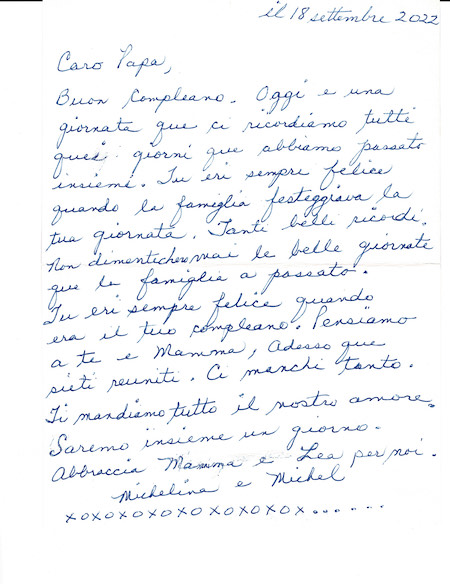 il 18 settembre 2022
Caro Papa,
Buon Compleano. Oggi e una
giornata que ci ricordiamo tutti
quei giorni que abbiamo passato
insiemi. Tu eri sempre felice
quando la famiglia festeggiava la
tua giornata. Tanti belli ricordi.
Non dimenticherò mai le belle giornate
que la famiglia a passato.
Tu eri sempre felice quando
era il tuo compleano. Pensiamo
a te e Mamma, Adesso que
sieti reuniti. Ci manchi tanto.
Ti mandiamo tutto il nostro amore.
Saremo insieme un giorno.
Abbraccia Mamma e Lea per noi.
Michelina e Michel
xoxoxoxoxoxoxoxox......